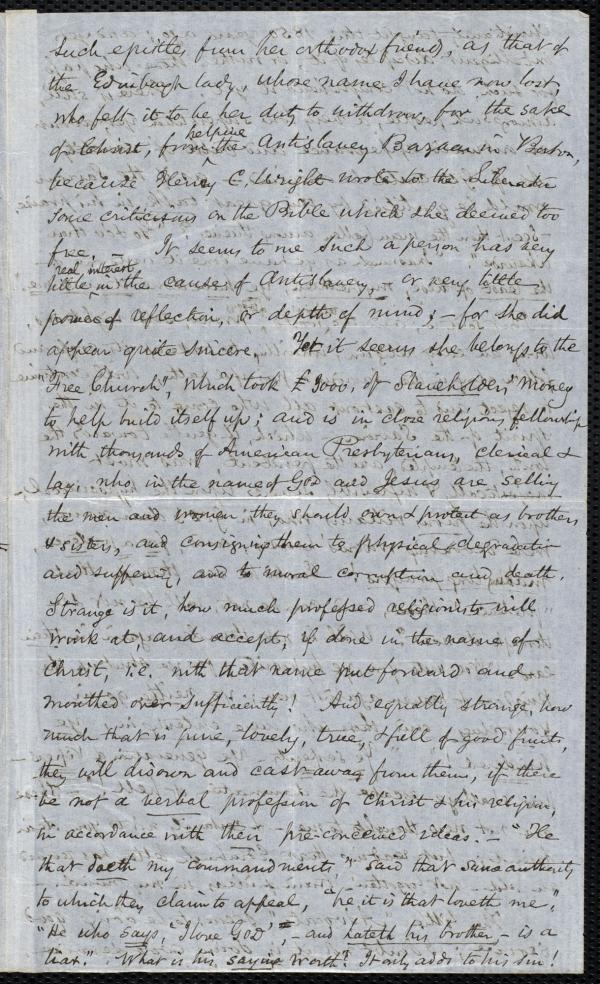 such epistles from her orthodox friends, as that of
the Edinburgh lady, whose name I have now lost,
who felt it to be her duty to withdraw, for the sake
of Christ, from helping the Antislavery Bazaar in Boston,
because Henry C. Wright wrote to the Liberator
some criticisms on the Bible which she deemed too
free. – It seems to me such a person has very
little real interest in the cause of Antislavery, – or very little
power of reflection, or depth of mind; – for she did
appear quite sincere. Yet it seems she belongs to the
"Free Church", which took £3000, of Slaveholders' money
to help build itself up; and is in close religious fellowship
with thousands of American Presbyterians, clerical &
lay, who in the name of God and Jesus are selling
the men and women they should own & protect as brothers
& sisters, and consigning them to physical degradation
and suffering, and to moral corruption and death.
Strange is it, how much professed religionists will
wink at, and accept, if done in the name of
Christ, i.e. with that name put forward and
mouthed over sufficiently! And equally strange, how
much that is pure, lovely, true, & full of good fruits,
they will disown and cast away from them, if there
be not a verbal profession of Christ & his religion,
in accordance with their pre-conceived ideas. – "He
that doeth my commandments," said that same authority
to which they claim to appeal, "he it is that loveth me,"
"He who says, 'I love God', – and hateth his brother, – is a
liar." What is his saying worth? It only adds to his sin!